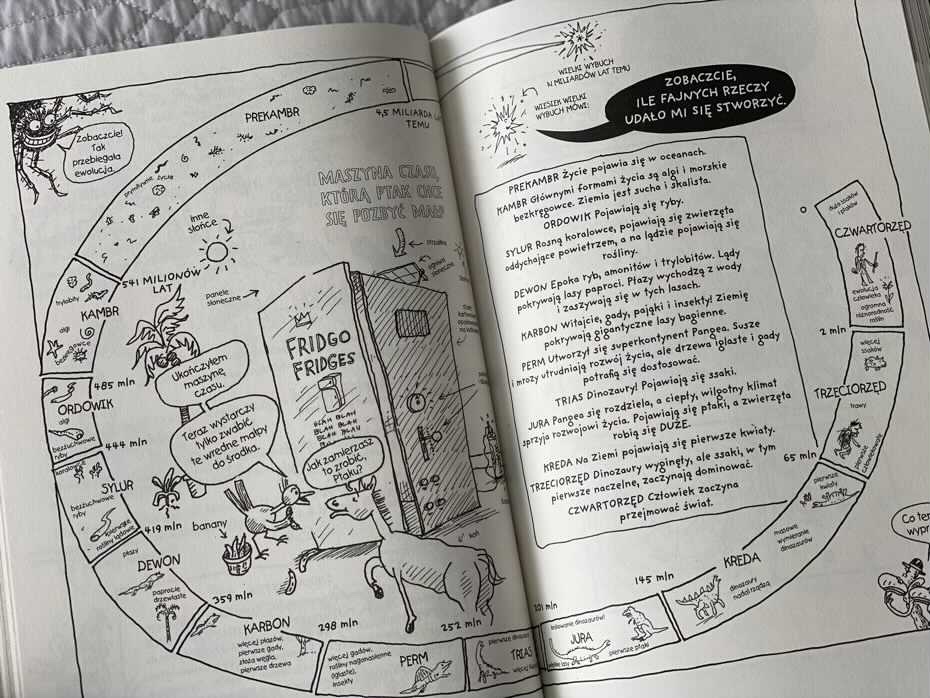 Zobaczcie!
Tak
przebiegała
ewolucja.
PREKAMBR
prymitywne życie
4,5 MILIARDA
TEMU
MASZYNA CZASU,
KTÓRĄ PTAK CHCE
SIĘ POZBYĆ MAŁP
inne
słońce
541 MILIONÓW
LAT
trylobity
KAMBR
algi
bezkręgowce
485 mln
ORDOWIK
algi
bezżuchwowe
ryby
444 mln
koralowce
SYLUR
bezżuchwowe
ryby
pierwsze
rośliny lądowe
419 mln
płazy
DEWON
paprocie
drzewiaste
359 mln
KARBON
więcej płazów,
pierwsze gady,
złoża węgla,
pierwsze drzewa
298 mln
więcej gadów,
rośliny nagonasienne
(iglaste),
insekty
PERM
252 mln
pierwsze dinozaury
TRIAS
więcej
panele
słoneczne
Ukończyłem
maszynę
czasu.
Teraz wystarczy
tylko zwabić
te wredne małpy
do środka.
Jak zamierzasz
to zrobić,
Ptaku?
banany
koń
FRIDGO
FRIDGES
BLAH BLAH
BLAH BLAH
BLAH BLAH
BLAH BLAH
WIELKI WYBUCH
14 MILIARDÓW LAT TEMU
WIESIEK WIELKI
WYBUCH MÓWI:
ZOBACZCIE,
ILE FAJNYCH RZECZY
UDAŁO MI SIĘ STWORZYĆ.
PREKAMBR Życie pojawia się w oceanach.
KAMBR Głównymi formami życia są algi i morskie
bezkręgowce. Ziemia jest sucha i skalista.
ORDOWIK Pojawiają się ryby.
SYLUR Rosną koralowce, pojawiają się zwierzęta
oddychające powietrzem, a na lądzie pojawiają się
rośliny.
DEWON Epoka ryb, amonitów i trylobitów. Lądy
pokrywają lasy paproci. Płazy wychodzą z wody
i zaszywają się w tych lasach.
KARBON Witajcie, gady, pająki i insekty! Ziemię
pokrywają gigantyczne lasy bagienne.
PERM Utworzył się superkontynent Pangea. Susze
i mrozy utrudniają rozwój życia, ale drzewa iglaste i gady
potrafią się dostosować.
TRIAS Dinozaury! Pojawiają się ssaki.
JURA Pangea się rozdziela, a ciepły, wilgotny klimat
sprzyja rozwojowi życia. Pojawiają się ptaki, a zwierzęta
robią się DUŻE.
KREDA Na Ziemi pojawiają się pierwsze kwiaty.
TRZECIORZĘD Dinozaury wyginęły, ale ssaki, w tym
pierwsze naczelne, zaczynają dominować.
CZWARTORZĘD Człowiek zaczyna
przejmować świat.
dużo ssaków
i ptaków
CZWARTORZĘD
ewolucja
człowieka
ogromna
różnorodność
roślin
2 mln
więcej
ssaków
TRZECIORZĘD
trawy
pierwsze
65 mln
pierwsze
kwiaty
masowe
wymieranie
dinozaurów
KREDA
dinozaury
nadal rządzą
145 mln
201 mln
JURA
pierwsze ptaki
Co te